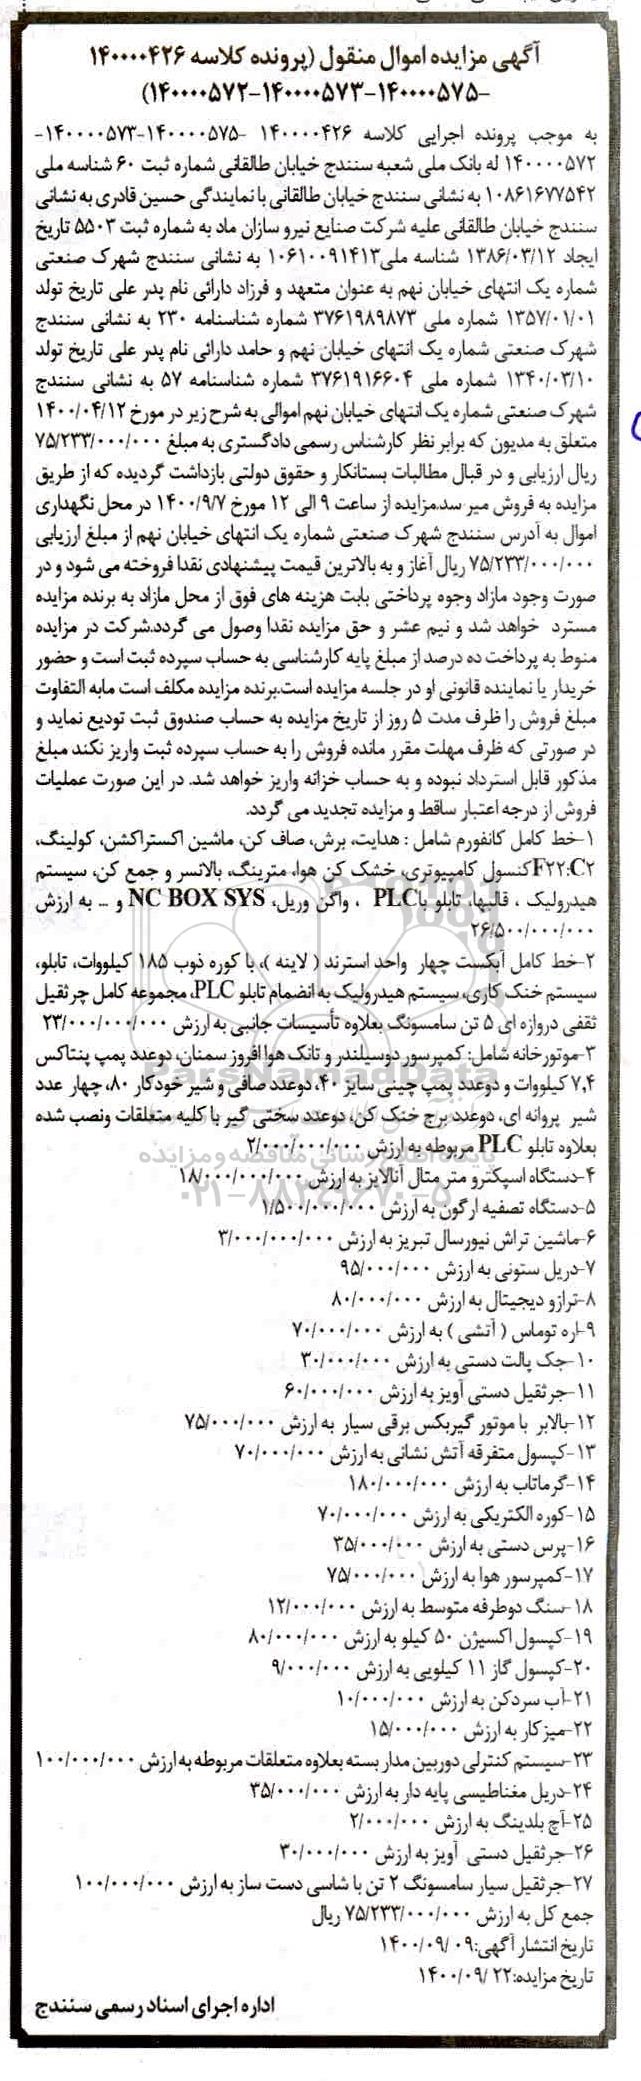 آگهی مزایده اموال منقول (پرونده کلاسه ۱۴۰۰۰۰۴۲۶
-۱۴۰۰۰۰۵۷۵-۱۴۰۰۰۰۵۷۳-۱۴۰۰۰۰۵۷۲)
به موجب پرونده اجرایی کلاسه ۱۴۰۰۰۰۴۲۶ -۱۴۰۰۰۰۵۷۵-۱۴۰۰۰۰۵۷۳-
۱۴۰۰۰۰۵۷۲ له بانک ملی شعبه سنندج خیابان طالقانی شماره ثبت ۶۰ شناسه ملی
۱۰۸۶۱۶۷۷۵۴۲ به نشانی سنندج خیابان طالقانی با نمایندگی حسین قادری به نشانی
سنندج خیابان طالقانی علیه شرکت صنایع نیرو سازان ماد به شماره ثبت ۵۵۰۳ تاریخ
ایجاد ۱۳۸۶/۰۳/۱۲ شناسه ملی۱۰۶۱۰۰۹۱۴۱۳ به نشانی سنندج شهرک صنعتی
شماره یک انتهای خیابان نهم به عنوان متعهد و فرزاد دارائی نام پدر علی تاریخ تولد
۱۳۵۷/۰۱/۰۱ شماره ملی ۳۷۶۱۹۸۹۸۷۳ شماره شناسنامه ۲۳۰ به نشانی سنندج
شهرک صنعتی شماره یک انتهای خیابان نهم و حامد دارائی نام پدر علی تاریخ تولد
۱۳۴۰/۰۳/۱۰ شماره ملی ۳۷۶۱۹۱۶۶۰۴ شماره شناسنامه ۵۷ به نشانی سنندج
شهرک صنعتی شماره یک انتهای خیابان نهم اموالی به شرح زیر در مورخ ۱۴۰۰/۰۴/۱۲
متعلق به مدیون که برابر نظر کارشناس رسمی دادگستری به مبلغ ۷۵/۲۳۳/۰۰۰/۰۰۰
ریال ارزیابی و در قبال مطالبات بستانکار و حقوق دولتی بازداشت گردیده که از طریق
مزایده به فروش میرسد.مزایده از ساعت ۹ الی ۱۲ مورخ ۱۴۰۰/۹/۷ در محل نگهداری
اموال به آدرس سنندج شهرک صنعتی شماره یک انتهای خیابان نهم از مبلغ ارزیابی
۷۵/۲۳۳/۰۰۰/۰۰۰ ریال آغاز و به بالاترین قیمت پیشنهادی نقدا فروخته می شود و در
صورت وجود مازاد وجوه پرداختی بابت هزینه های فوق از محل مازاد به برنده مزایده
مسترد خواهد شد و نیم عشر و حق مزایده نقدا وصول می گردد.شرکت در مزایده
منوط به پرداخت ده درصد از مبلغ پایه کارشناسی به حساب سپرده ثبت است و حضور
خریدار یا نماینده قانونی او در جلسه مزایده است.برنده مزایده مکلف است مابه التفاوت
مبلغ فروش را ظرف مدت ۵ روز از تاریخ مزایده به حساب صندوق ثبت تودیع نماید و
در صورتی که ظرف مهلت مقرر مانده فروش را به حساب سپرده ثبت واریز نکند مبلغ
مذکور قابل استرداد نبوده و به حساب خزانه واریز خواهد شد. در این صورت عملیات
فروش از درجه اعتبار ساقط و مزایده تجدید می گردد.
۱-خط کامل کانفورم شامل : هدایت، برش، صاف کن، ماشین اکستراکشن، کولینگ،
F۲۲:C۲ کنسول کامپیوتری، خشک کن هوا، مترینگ، بالانسر و جمع کن، سیستم
هیدرولیک ، قالبها، تابلو باPLC ، واگن وریل، NC BOX SYS و ... به ارزش
۲۶/۵۰۰/۰۰۰/۰۰۰
۲-خط کامل آبکست چهار واحد استرند ( لاینه )، با کوره ذوب ۱۸۵ کیلووات، تابلو،
سیستم خنک کاری، سیستم هیدرولیک به انضمام تابلو PLC، مجموعه کامل جرثقیل
ثقفی دروازه ای ۵ تن سامسونگ بعلاوه تأسیسات جانبی به ارزش ۲۳/۰۰۰/۰۰۰/۰۰۰
۳-موتورخانه شامل: کمپرسور دوسیلندر و تانک هوا افروز سمنان، دوعدد پمپ پنتاکس
۷,۴ کیلووات و دوعدد پمپ چینی سایز ۴۰، دوعدد صافی و شیر خودکار ۸۰، چهار عدد
شیر پروانه ای، دوعدد برج خنک کن، دوعدد سختی گیر با کلیه متعلقات ونصب شده
بعلاوه تابلو PLC مربوطه به ارزش ۲/۰۰۰/۰۰۰/۰۰۰
۴-دستگاه اسپکترو متر متال آنالایز به ارزش ۱۸/۰۰۰/۰۰۰/۰۰۰
۵-دستگاه تصفیه ارگون به ارزش ۱/۵۰۰/۰۰۰/۰۰۰
۶-ماشین تراش نیورسال تبریز به ارزش ۳/۰۰۰/۰۰۰/۰۰۰
۷-دریل ستونی به ارزش ۹۵/۰۰۰/۰۰۰
۸-ترازو دیجیتال به ارزش ۸۰/۰۰۰/۰۰۰
۹-اره توماس ( آتشی ) به ارزش ۷۰/۰۰۰/۰۰۰
۱۰-جک پالت دستی به ارزش ۳۰/۰۰۰/۰۰۰
۱۱-جرثقیل دستی آویز به ارزش ۶۰/۰۰۰/۰۰۰
۱۲-بالابر با موتور گیربکس برقی سیار به ارزش ۷۵/۰۰۰/۰۰۰
۱۳-کپسول متفرقه آتش نشانی به ارزش ۷۰/۰۰۰/۰۰۰
۱۴-گرماتاب به ارزش ۱۸۰/۰۰۰/۰۰۰
۱۵-کوره الکتریکی به ارزش ۷۰/۰۰۰/۰۰۰
۱۶-پرس دستی به ارزش ۳۵/۰۰۰/۰۰۰
۱۷-کمپرسور هوا به ارزش ۷۵/۰۰۰/۰۰۰
۱۸-سنگ دوطرفه متوسط به ارزش ۱۲/۰۰۰/۰۰۰
۱۹-کپسول اکسیژن ۵۰ کیلو به ارزش ۸۰/۰۰۰/۰۰۰
۲۰-کپسول گاز ۱۱ کیلویی به ارزش ۹/۰۰۰/۰۰۰
۲۱-آب سردکن به ارزش ۱۰/۰۰۰/۰۰۰
۲۲-میزکار به ارزش ۱۵/۰۰۰/۰۰۰
۲۳-سیستم کنترلی دوربین مدار بسته بعلاوه متعلقات مربوطه به ارزش ۱۰۰/۰۰۰/۰۰۰
۲۴-دریل مغناطیسی پایه دار به ارزش ۳۵/۰۰۰/۰۰۰
۲۵-آچ بلدینگ به ارزش ۲/۰۰۰/۰۰۰
۲۶-جرثقیل دستی آویز به ارزش ۳۰/۰۰۰/۰۰۰
۲۷-جرثقیل سیار سامسونگ ۲ تن با شاسی دست ساز به ارزش ۱۰۰/۰۰۰/۰۰۰
جمع کل به ارزش ۷۵/۲۳۳/۰۰۰/۰۰۰ ریال
تاریخ انتشار آگهی:۱۴۰۰/۰۹/۰۹
تاریخ مزایده:۱۴۰۰/۰۹/۲۲
اداره اجرای اسناد رسمی سنندج
ParsNamadData
پایگاه اطلاع رسانی مناقصه و مزایده
۰۲۱-۸۸۳۴۹۶۷۰-۵